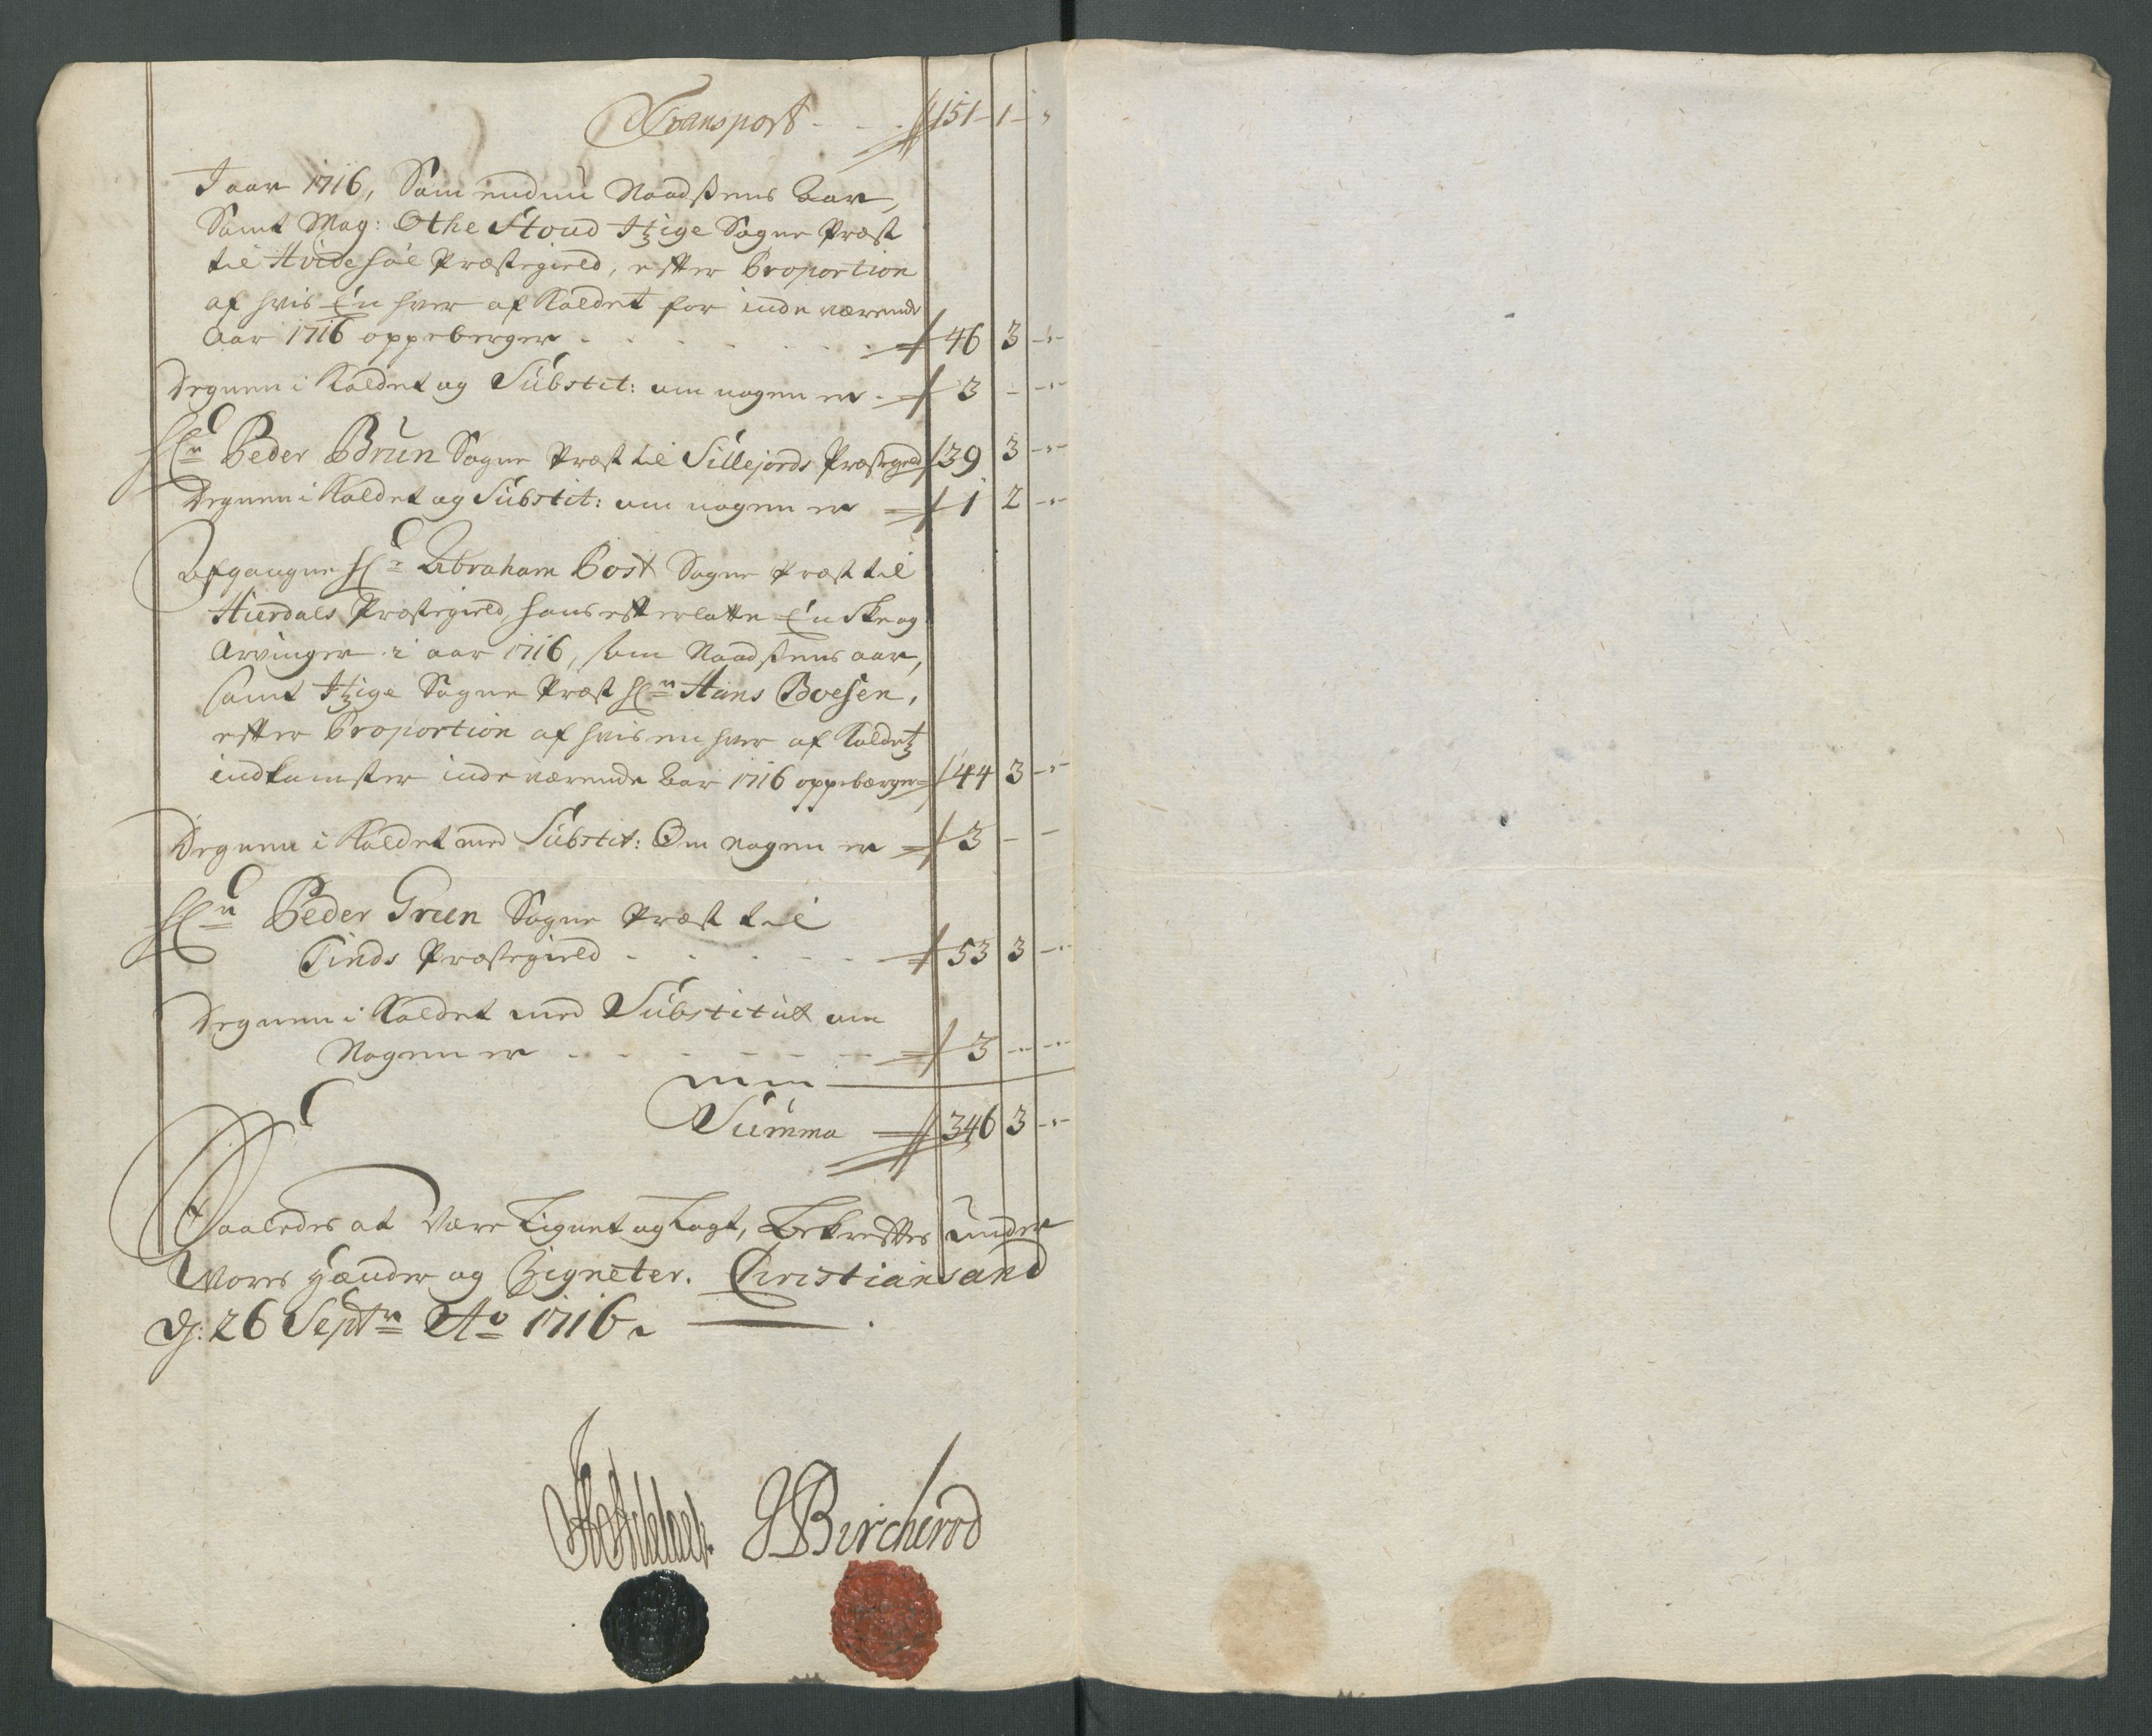 Transport - - . 151 - 1 - „
I aar 1716, Som endnu Naadßens Aar,
Samt Mag: Othe Stoud Itzige Sogne Præst
til Hvidesøe Præstegield, efter Proportion
af hvis En hver af Kaldet for inde værende
Aar 1716 oppeberger - - - - - 46 3 -„-
Degnen i Kaldet og Substit: om nogen er - 3 - -„-
Hr Peder Brun Sogne Præst til Sillejords Præstegield 39 3 -„-
Degnen i Kaldet og Substit: om nogen er 1 2 -„-
Afgangne Hr Abraham Post Sogne Præst til
Hierdals Præstegield, hans efterlatte Enke og
Arvinger i aar 1716, som Naadßens aar,
samt Itzige Sogne Præst Hr Hans Boesen,
efter Proportion af hvis en hver af Kaldetz
indkomster inde værende Aar 1716 oppebærger 44 3 -„-
Degnen i Kaldet med Substit: Om nogen er 3 - -
Hr Peder Green Sogne Præst til
Tinds Præstegield - - - - - 53 3 -„-
Degnen i Kaldet med Substitut om
Nogen er - - - - - - 3 -„- -„-
Summa 346 3 -„-
Saaledes at være Lignet og Lagt, Bekreftes under
Vores Hænder og Zigneter. Christiansand
d: 26 Septr Ao 1716.
JBircherod